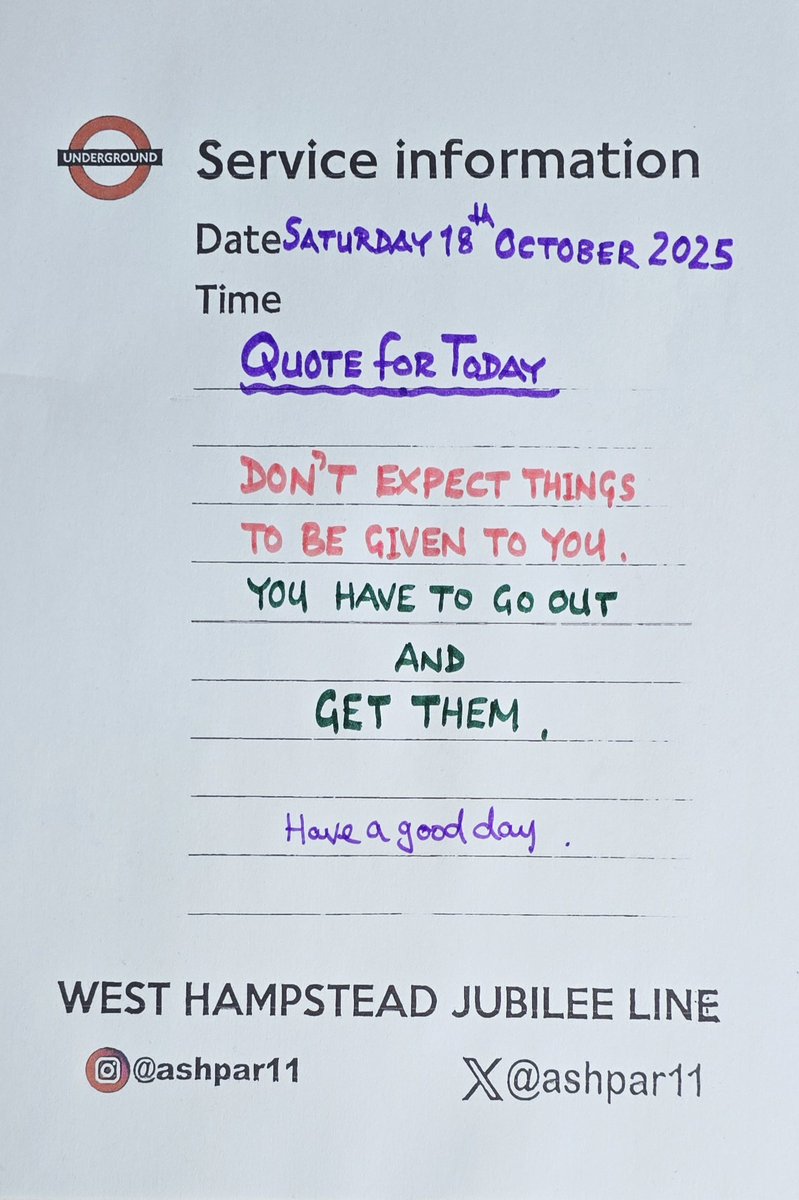 UNDERGROUND
Service information
Date SATURDAY 18th OCTOBER 2025
Time
QUOTE FOR TODAY
DON'T EXPECT THINGS
TO BE GIVEN TO YOU.
YOU HAVE TO GO OUT
AND
GET THEM.
Have a good day.
WEST HAMPSTEAD JUBILEE LINE
@ashpar11
X@ashpar11